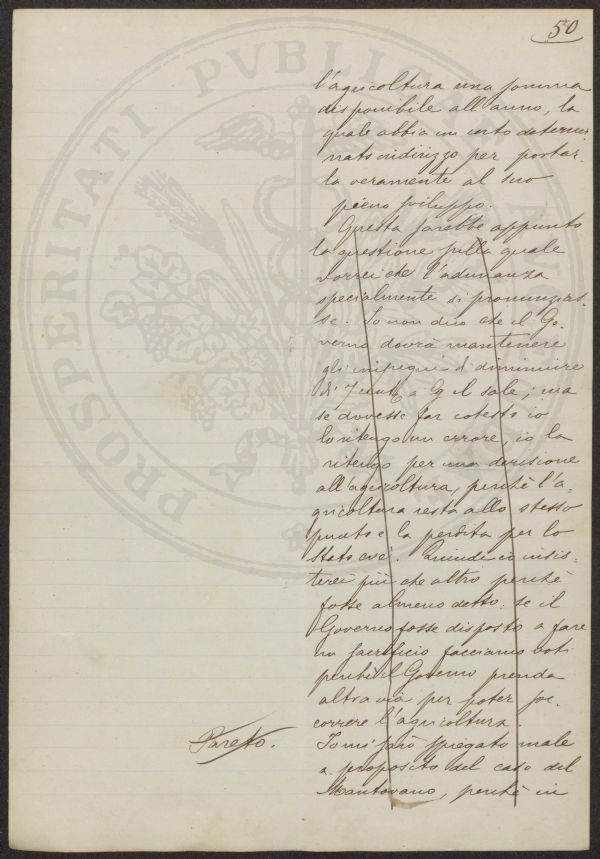 50
PROSPERITATI PVBLICAE
l'agricoltura una somma
disponibile all'anno, la
quale abbia un certo determi
nato indirizzo per portar-
la veramente al suo
pieno sviluppo.
Questa sarebbe appunto
la questione sulla quale
vorrei che l'adunanza
specialmente si pronunzias-
se. Io non dico che il Go-
verno dovrà mantenere
gli impegni di diminuire
di 2 cent. a Cg il sale; ma
se dovesse far cotesto io
lo ritengo un errore, io la
ritengo per una derisione
all'agricoltura, perchè l'a=
gricoltura resta allo stesso
punto e la perdita per lo
Stato c'è. Quindi io insis=
terei più che altro perchè
fosse almeno detto: se il
Governo fosse disposto a fare
un sacrificio facciamo voti
perchè il Governo prenda
altra via per poter soc-
correre l'agricoltura.
Pareto.
Io mi sarò spiegato male
a proposito del caso del
Mantovano, perchè in